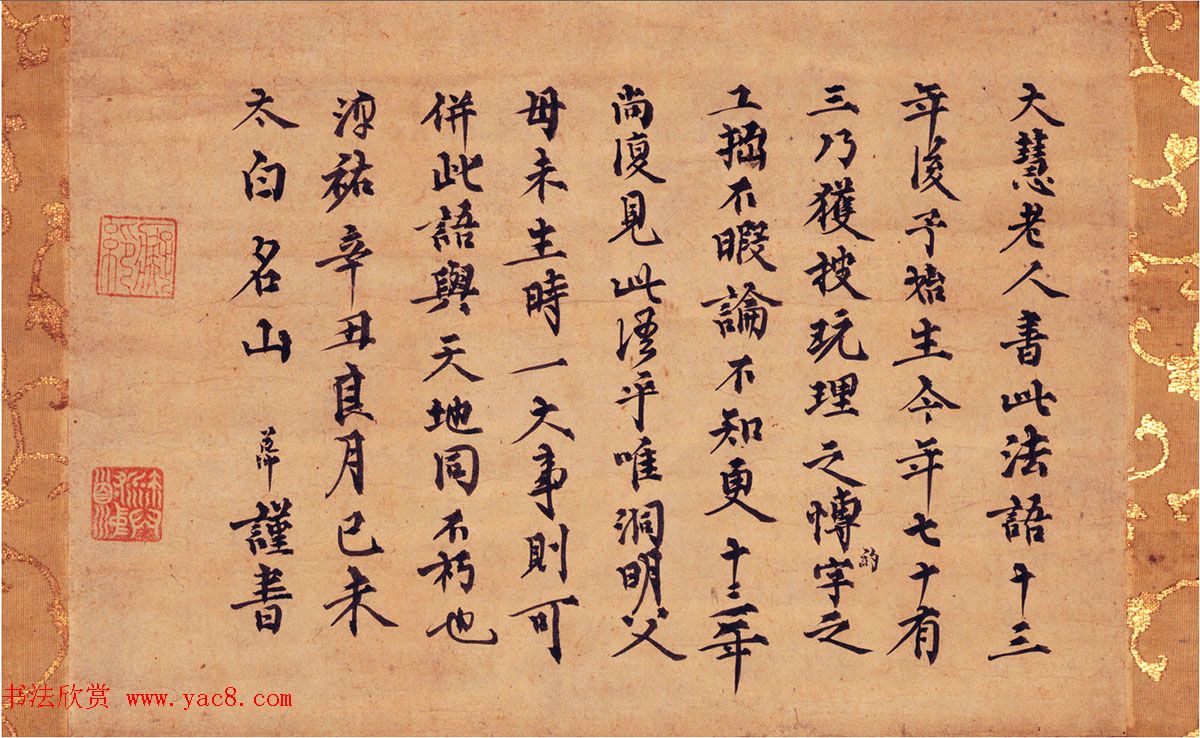 大慧老人書此法語十三
年後予始生今年七十有
三乃獲披玩理之慱的字之
工拙不暇論不知更十三年
尚復見此得乎唯洞明父
母未生時一大事則可
併此語與天地同不朽也
淳祐辛丑良月已未
太白名山 謹書
书法欣赏 www.yac8.com